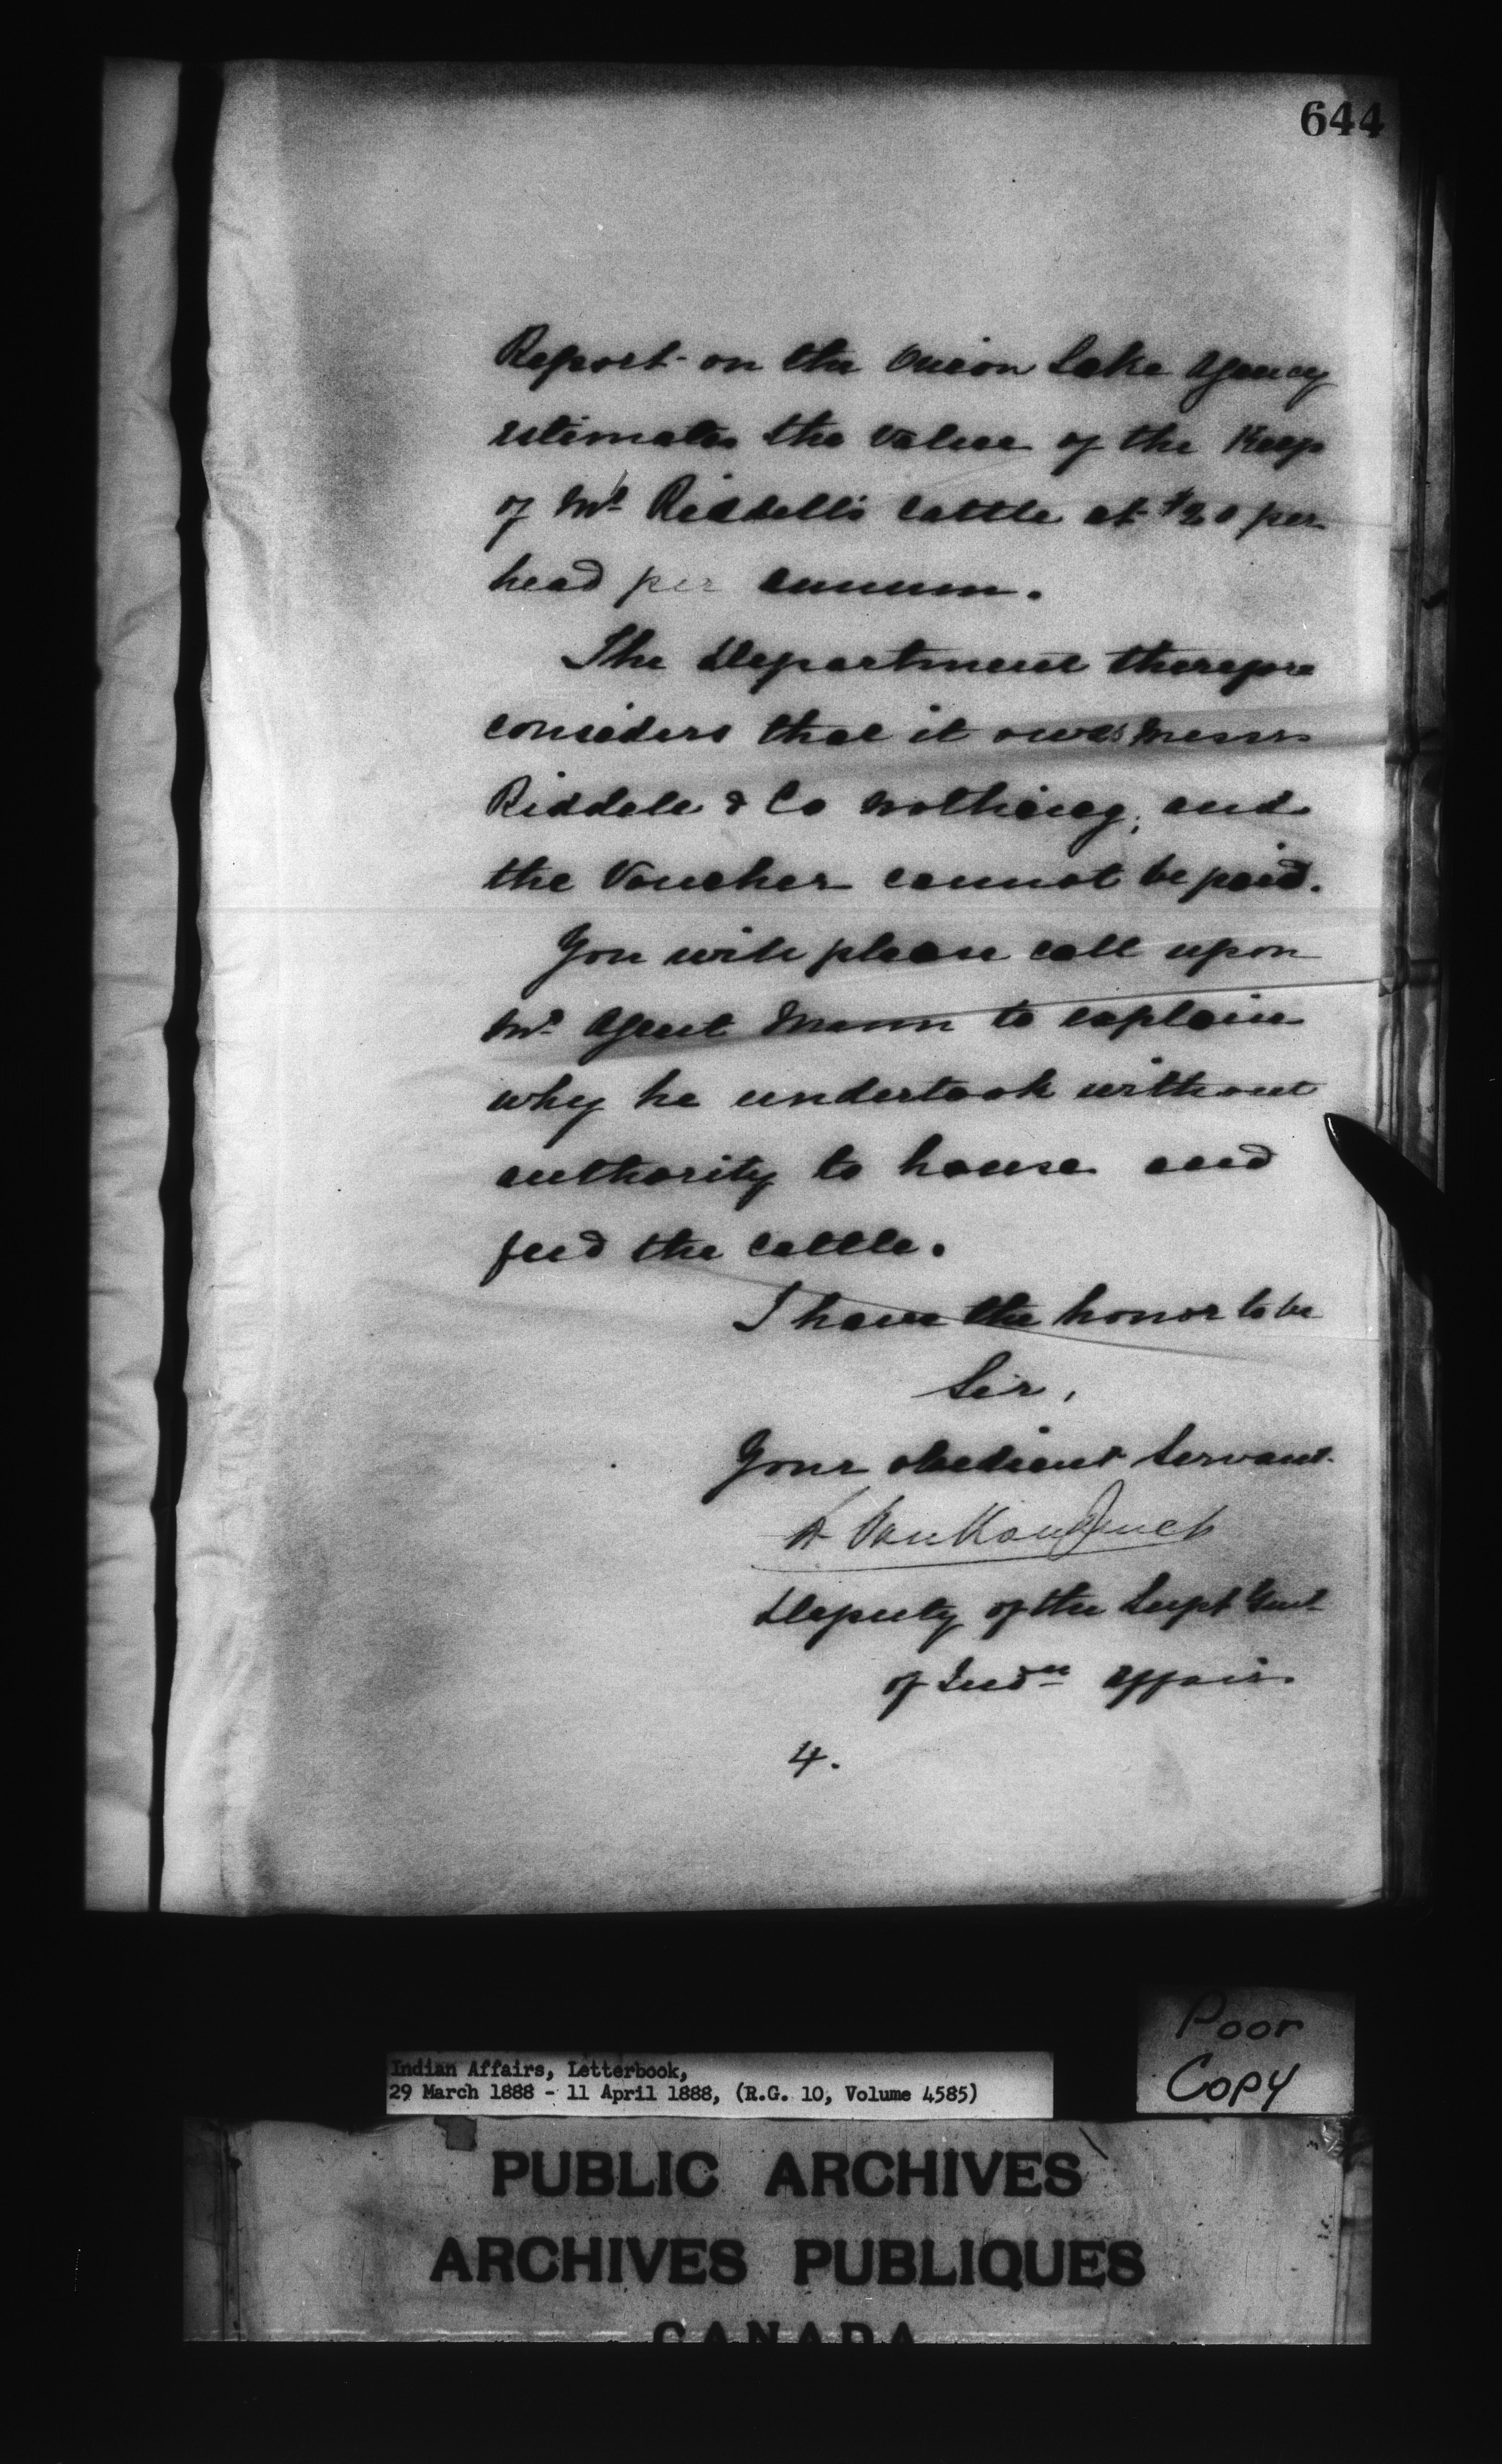 644
Report on the Onion Lake Agency
estimates the value of the Keep
of Mr Riddell's cattle at $20 per
head per annum.
The Department therefore
considers that it owes Messrs
Riddele & Co nothing; and
the Voucher cannot be paid.
You will please call upon
Mr Agent Mann to explain
why he undertook without
authority to house and
feed the cattle.
I have the honor to be
Sir,
Your obedient Servant.
L VanKoughnet
Deputy of the Supt Genl
of Indn Affairs
4.
Poor
Copy
Indian Affairs, Letterbook,
29 March 1888 - 11 April 1888, (R.G. 10, Volume 4585)
PUBLIC ARCHIVES
ARCHIVES PUBLIQUES
CANADA